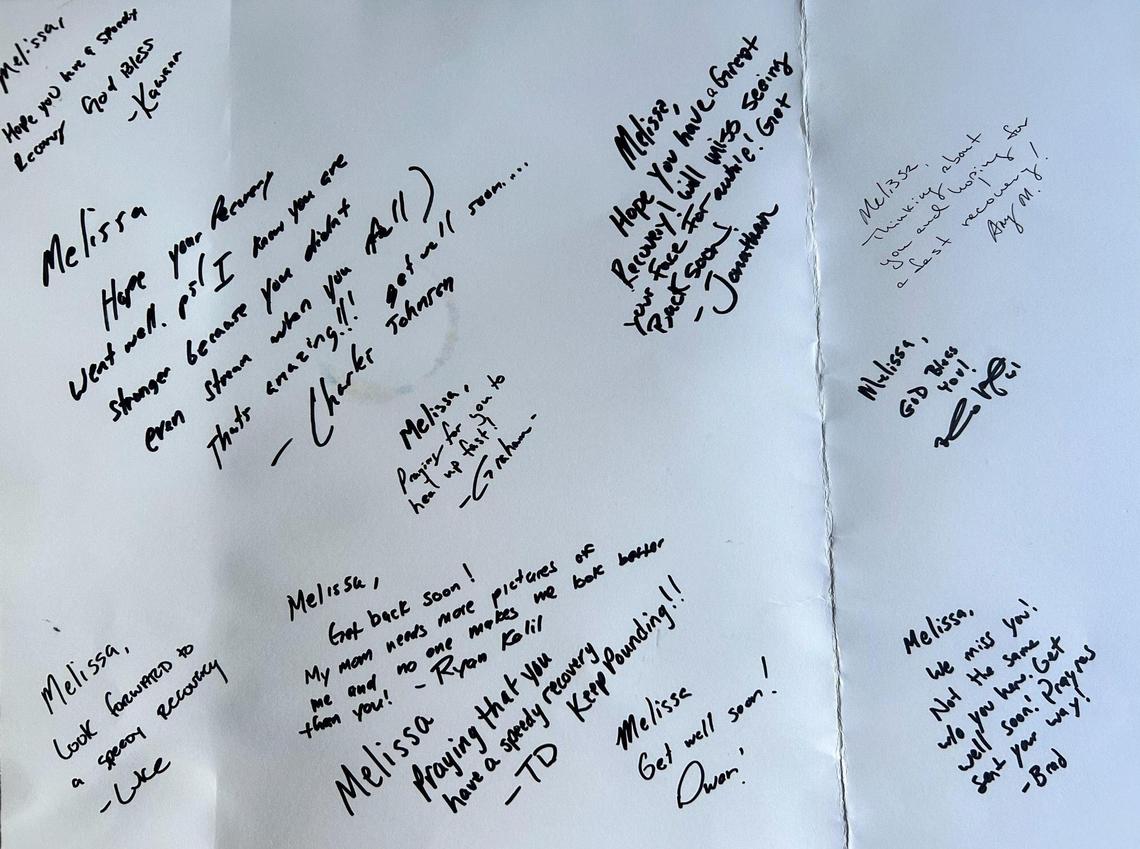 Melissa,
Hope you have a speedy
Recovery God Bless
-Kawann
Melissa
Hope your Recovery
went well. ps( I know you are
stronger because you didnt
even stream when you fall)
Thats amazing!!! get well soon....
- Charles Johnson
Melissa,
Praying for you to
heal up fast!
-Graham-
Melissa,
Hope you have a Great
Recovery! i will miss seeing
your face for awhile! Get
Back soon!
- Jonathan
Melissa,
Thinking about
you and hoping for
a fast recovery!
Amy M.
Melissa,
GOD Bless
you!
Melissa,
Look forward to
a speedy recovery
-Luke
Melissa,
Get back soon!
My mom needs more pictures of
me and no one makes me look better
than you! - Ryan Kalil
Melissa
Praying that you
have a speedy recovery
-TD Keep Pounding!!
Melissa
Get well soon!
Melissa,
We miss you!
Not the same
w/o you here. Get
well soon! Prayers
sent your way!
-Brad